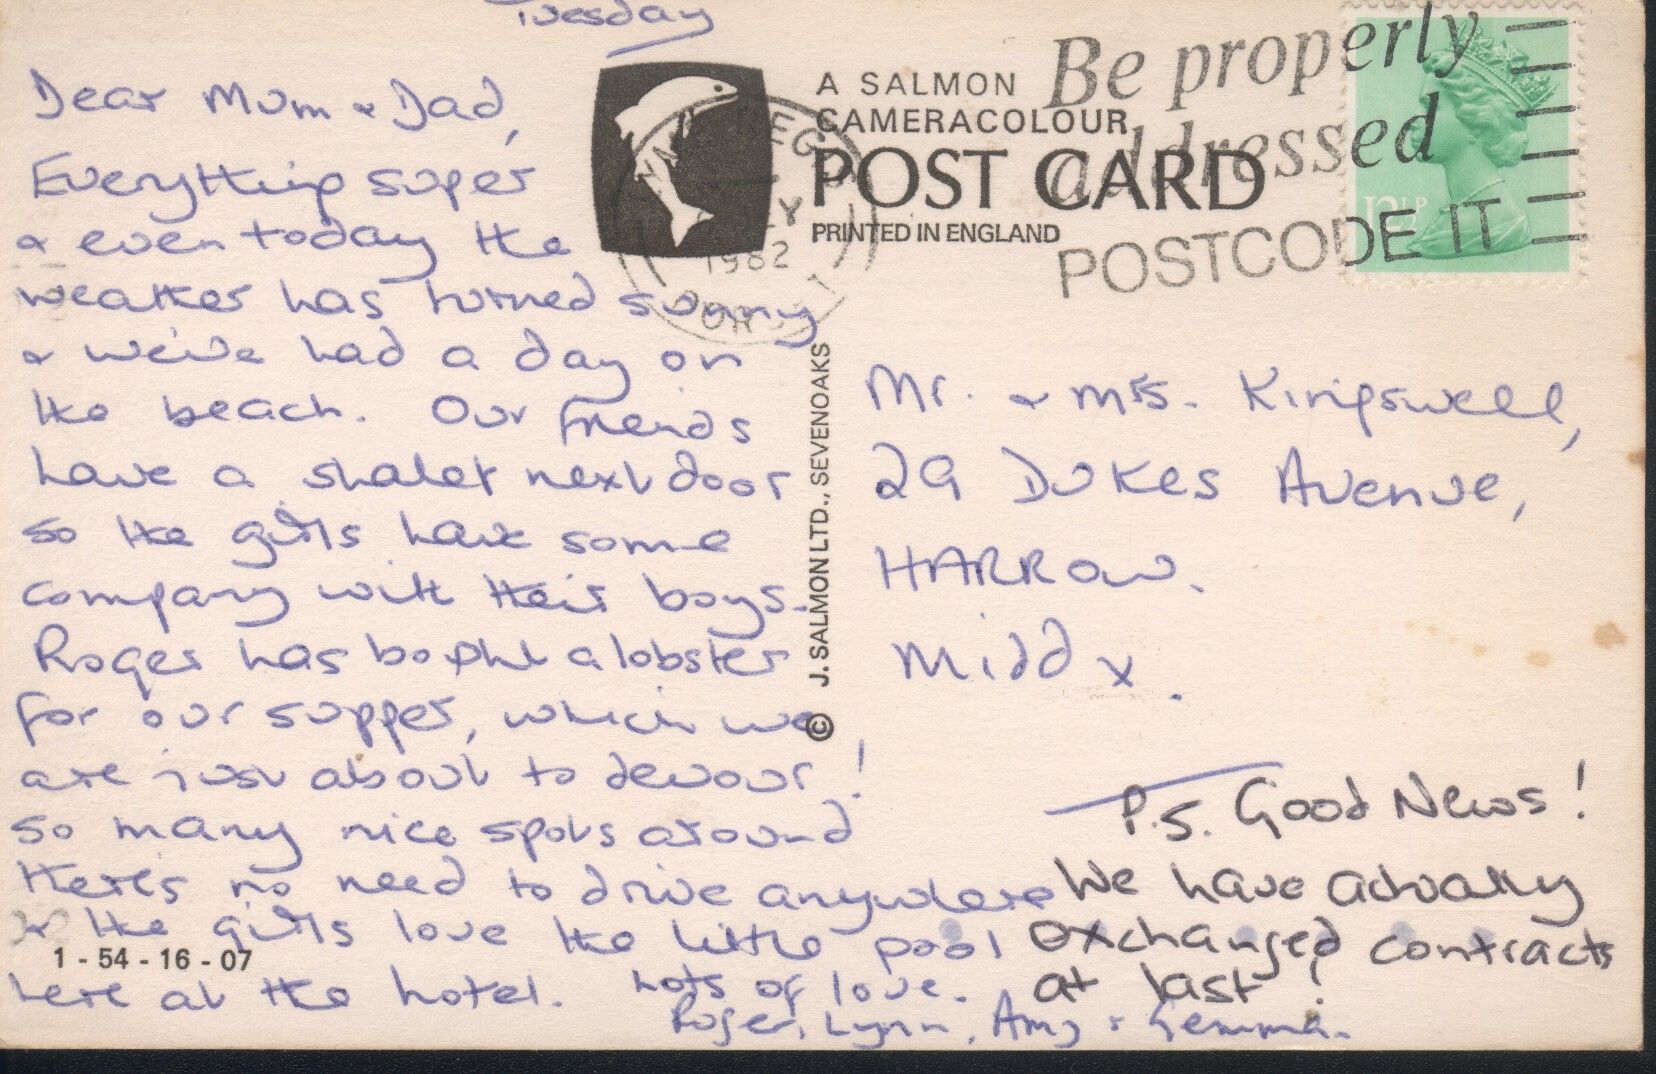 Tuesday
Dear Mum & Dad,
Everything super
& even today the
weather has turned sunny
& we've had a day on
the beach. Our friends
have a shalet next door
so the girls have some
company with their boys.
Roger has bought a lobster
for our supper, which we
are just about to devour!
So many nice spots around
there's no need to drive anywhere
& the girls love the little pool
here at the hotel. Lots of love.
Roger, Lynn, Amy & Gemma.
1 - 54 - 16 - 07
A SALMON
CAMERACOLOUR
POST CARD
PRINTED IN ENGLAND
© J. SALMON LTD., SEVENOAKS
1982
Be properly
addressed
POSTCODE IT
12½P
Mr. & Mrs. Kingswell,
29 Dukes Avenue,
HARROW.
Middx.
P.S. Good News!
We have actually
exchanged contracts
at last!